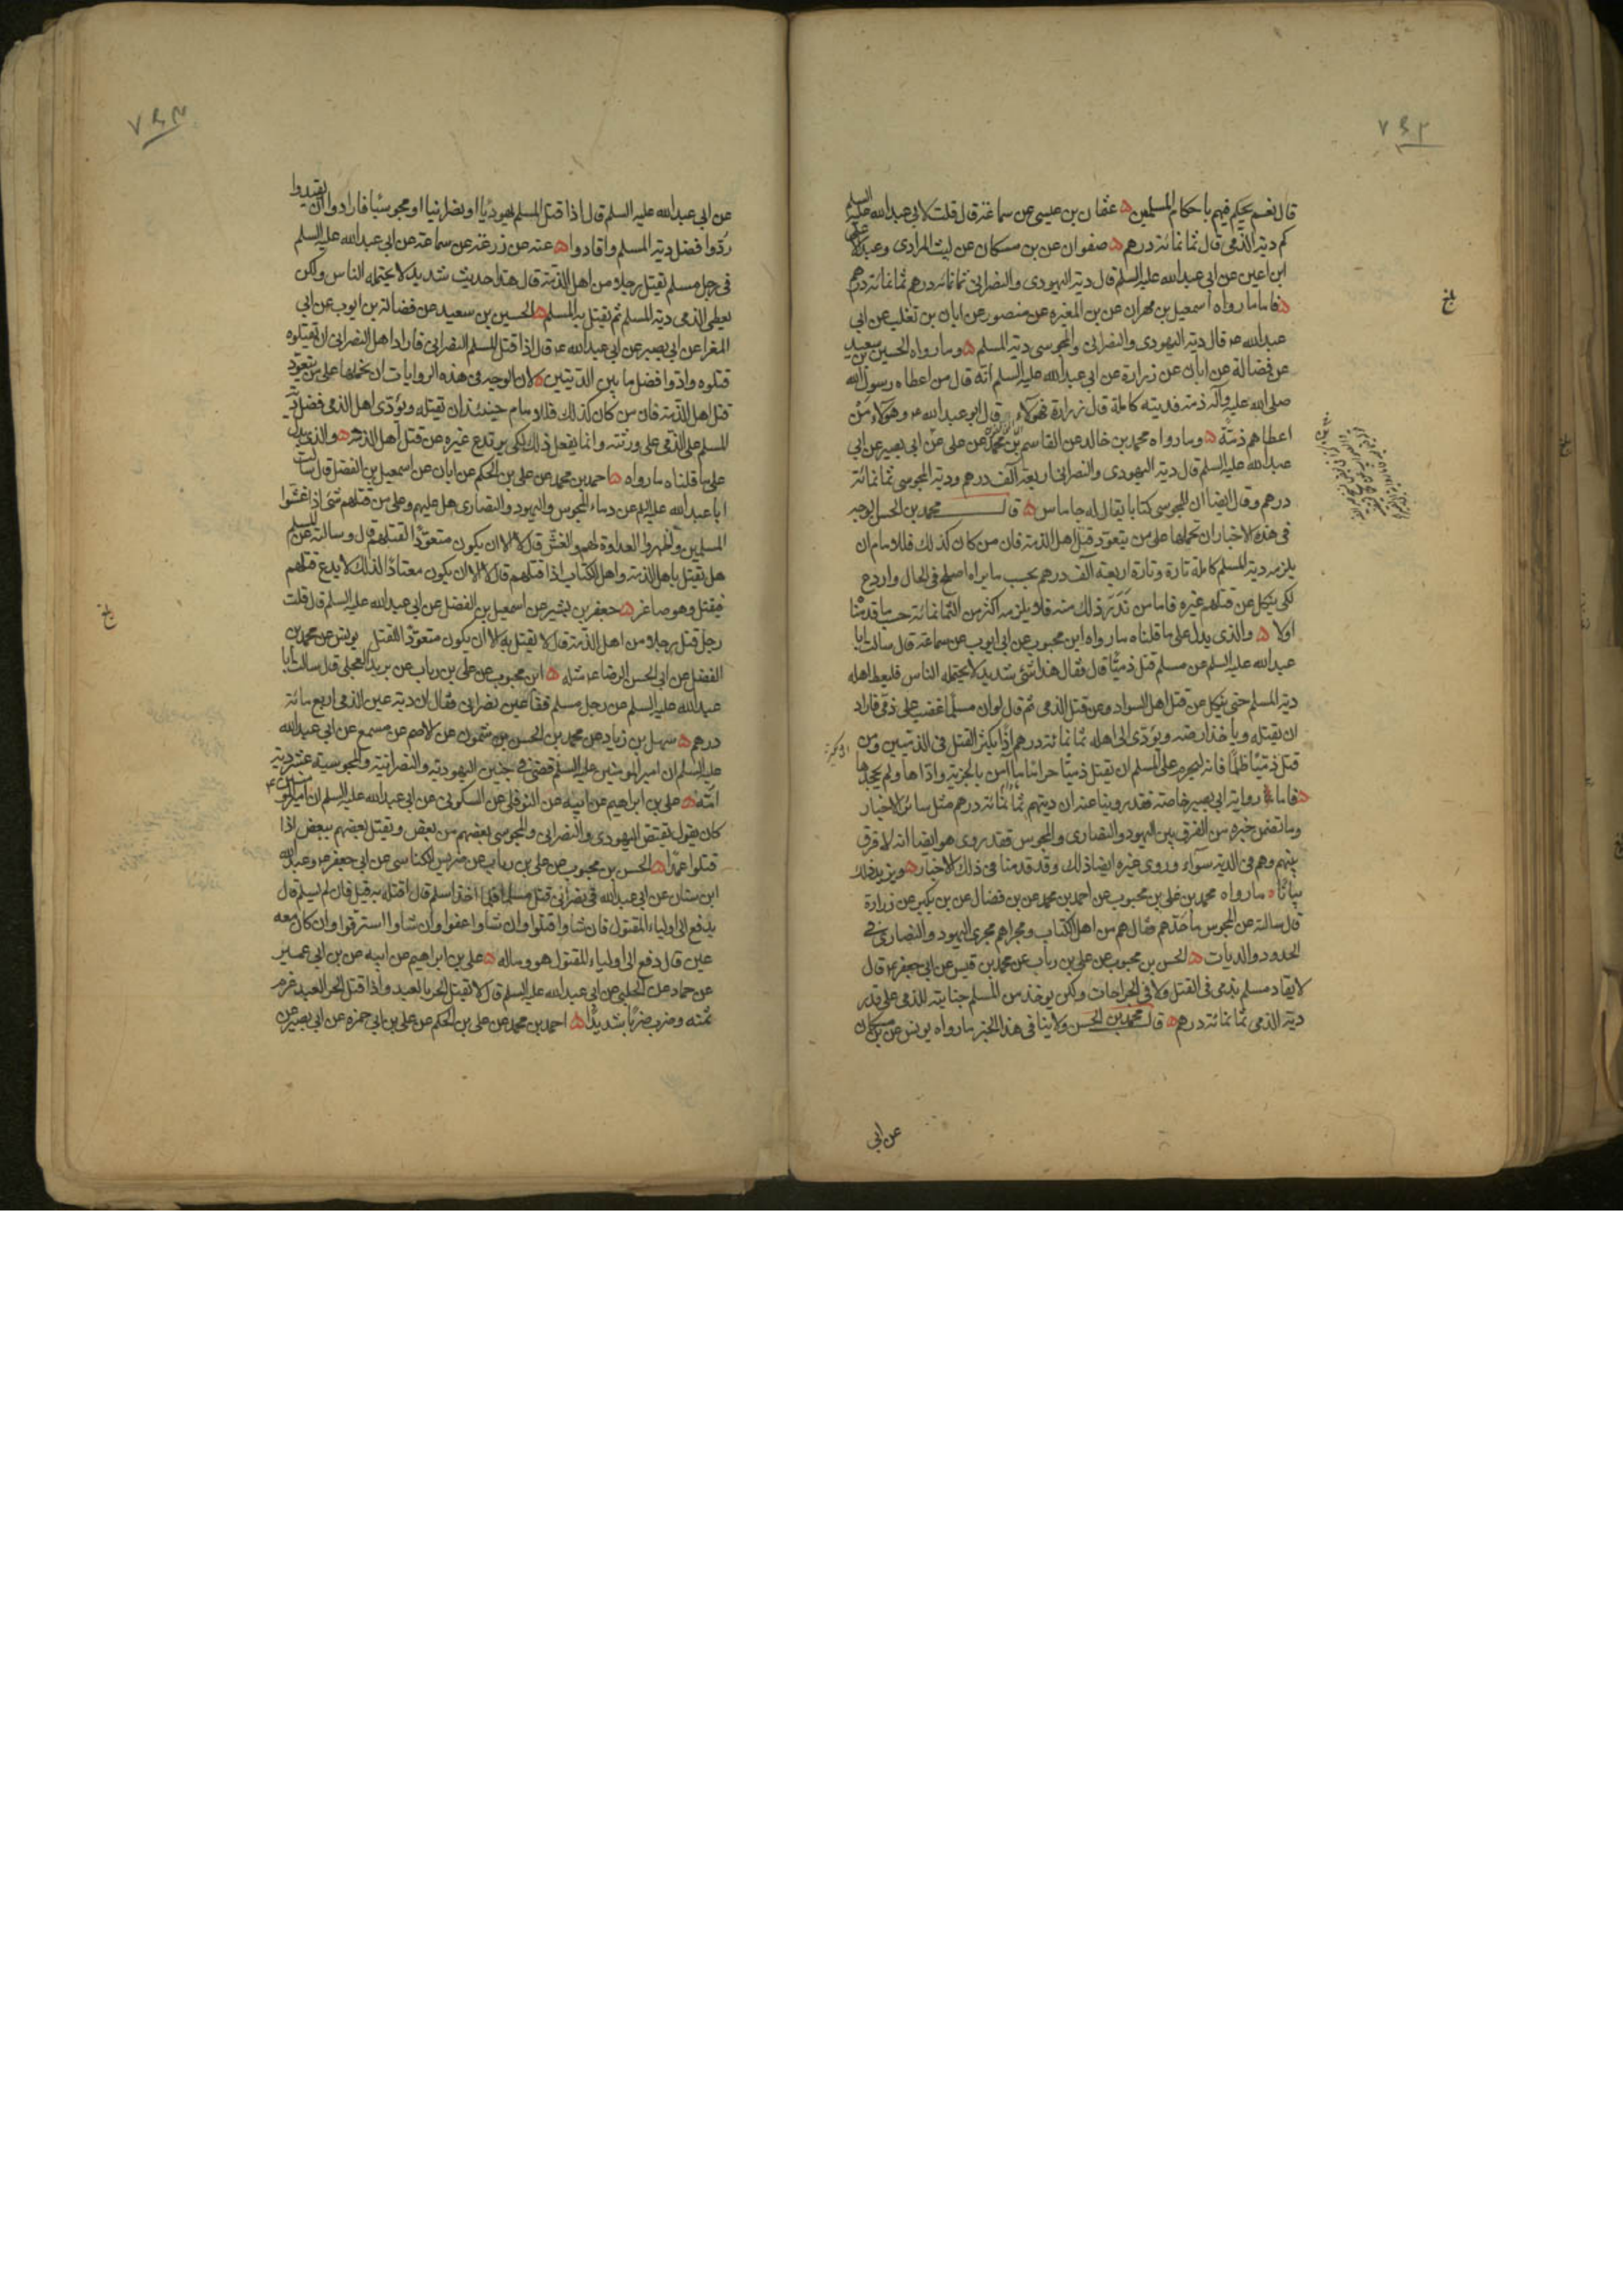 ٧٤٢
قال نعم يحكم فيهم باحكام المسلمين ه عثمان بن عيسى عن سماعة قال قلت لابي عبدالله عليه السلم
كم دية الذمى قال ثمانمائة درهم ه صفوان عن بن مسكان عن ليث المرادى وعبد الاعلى
ابن اعين عن ابي عبدالله عليه السلم قال دية اليهودى والنصرانى ثمانمائة درهم ثمانمائة درهم
ه فاما ما رواه اسمعيل بن مهران عن بن المغيره عن منصور عن ابان بن تغلب عن ابي
عبدالله عم قال دية اليهودى والنصرانى والمجوسى دية المسلم ه وما رواه الحسين بن سعيد
عن فضالة عن ابان عن زرارة عن ابي عبدالله عليه السلم انه قال من اعطاه رسول الله
صلى الله عليه وآله ذمة فديته كاملة قال زرارة فهؤلاء قال ابو عبدالله عم وهؤلاء من
اعطاهم ذمة ه وما رواه محمد بن خالد عن القاسم بن محمد عن على عن ابي بصير عن ابي
عبدالله عليه السلم قال دية اليهودى والنصرانى اربعة آلف درهم ودية المجوسى ثمانمائة
درهم وقال ايضا ان للمجوسى كتابا يقال له جاماس ه قال محمد بن الحسن الوجه
فى هذه الاخبار ان نحملها على من يتعود قتل اهل الذمة فان من كان كذلك فللامام ان
يلزمه دية المسلم كاملة تارة وتارة اربعة آلف درهم بحسب ما يراه اصلح فى الحال واردع
لكى ينكل عن قتلهم غيره فاما من ندر ذلك منه فلا يلزمه اكثر من الثمانمائة حسب ما قدمنا
اولا ه والذى يدل على ما قلناه ما رواه ابن محبوب عن ابي ايوب عن سماعة قال سالت ابا
عبدالله عليه السلم عن مسلم قتل ذميا قال فقال هذا شئ شديد لا يحتمله الناس فليعط اهله
دية المسلم حتى ينكل عن قتل اهل السواد وعن قتل الذمى ثم قال لو ان مسلما غضب على ذمى فاراد
ان يقتله ويأخذ ارضه ويؤدى الى اهله ثمانمائة درهم اذًا يكثر القتل فى الذميين ومن
قتل ذميا ظلما فانه ليحرم على المسلم ان يقتل ذميا حراما ما آمن بالجزية واداها ولم يجحدها
ه فاما رواية ابي بصير خاصة فقد روينا عنه ان ديتهم ثمانمائة درهم مثل سائر الاخبار
وما تضمن خبره من الفرق بين اليهود والنصارى والمجوس فقد روى هو ايضا انه لا فرق
بينهم وهم فى الدية سوآء وروى غيره ايضا ذلك وقد قدمنا فى ذلك الاخبار ه ويزيد ذلك
بيانا ه ما رواه محمد بن على بن محبوب عن احمد بن محمد عن بن فضال عن بن بكير عن زرارة
قال سالته عن المجوس ما حدهم فقال هم من اهل الكتاب ومجراهم مجرى اليهود والنصارى فى
الحدود والديات ه الحسن بن محبوب عن على بن رباب عن محمد بن قيس عن ابي جعفر عم قال
لا يقاد مسلم بذمى فى القتل ولا فى الجراحات ولكن يوخذ من المسلم جنايته للذمى على قدر
دية الذمى ثمانمائة درهم ه قال محمد بن الحسن ولا ينافى هذا الخبر ما رواه يونس عن بن مسكان
عن ابي
بلغ
٧٤٣
عن ابي عبدالله عليه السلم قال اذا قتل المسلم يهوديا او نصرانيا او مجوسيا فارادوا ان يقيدوا
ردوا فضل دية المسلم واقادوا ه عنه عن زرعة عن سماعة عن ابي عبدالله عليه السلم
فى رجل مسلم يقتل رجلا من اهل الذمة قال هذا حديث شديد لا يحتمله الناس ولكن
يعطى الذمى دية المسلم ثم يقتل به المسلم ه الحسين بن سعيد عن فضالة بن ايوب عن ابي
المغرا عن ابي بصير عن ابي عبدالله عم قال اذا قتل المسلم النصرانى فاراد اهل النصرانى ان يقتلوه
قتلوه وادوا فضل ما بين الديتين ه لان الوجه فى هذه الروايات ان نحملها على من يتعود
قتل اهل الذمة فان من كان كذلك فللامام حينئذ ان يقتله ويؤدى اهل الذمى فضل دية
المسلم على الذمى على ورثته وانما يفعل ذلك لكى يرتدع غيره عن قتل اهل الذمة ه والذى يدل
على ما قلناه ما رواه ه احمد بن محمد عن على بن الحكم عن ابان عن اسمعيل بن الفضل قال سالت
ابا عبدالله عليه السلم عن دماء المجوس واليهود والنصارى هل عليهم وعلى من قتلهم شئ اذا غشوا
المسلمين واظهروا العداوة لهم والغش قال لا الا ان يكون متعودًا لقتلهم قال وسالته عن المسلم
هل يقتل باهل الذمة واهل الكتاب اذا قتلهم قال لا الا ان يكون معتادًا لذلك لا يدع قتلهم
فيقتل وهو صاغر ه جعفر بن بشير عن اسمعيل بن الفضل عن ابي عبدالله عليه السلم قال قلت
رجل قتل رجلا من اهل الذمة قال لا يقتل به الا ان يكون متعودًا للقتل يونس عن محمد بن
الفضل عن ابي الحسن الرضا عم مثله ه ابن محبوب عن على بن رباب عن بريد العجلى قال سالت ابا
عبدالله عليه السلم عن رجل مسلم فقا عين نصرانى فقال ان دية عين الذمى اربع مائة
درهم ه سهل بن زياد عن محمد بن الحسن بن شمون عن الاصم عن مسمع عن ابي عبدالله
عليه السلم ان امير المومنين عليه السلم قضى فى جنين اليهودية والنصرانية والمجوسية عشر دية
امه ه على بن ابراهيم عن ابيه عن النوفلى عن السكونى عن ابي عبدالله عليه السلم ان امير المومنين ع
كان يقول يقتص اليهودى والنصرانى والمجوسى بعضهم من بعض ويقتل بعضهم ببعض اذا
قتلوا عمدا ه الحسن بن محبوب عن على بن رباب عن ضريس الكناسى عن ابي جعفر عم وعبد الله
ابن سنان عن ابي عبدالله فى نصرانى قتل مسلما فلما اخذ اسلم قال اقتله به قيل فان لم يسلم قال
يدفع الى اولياء المقتول فان شاوا قتلوا وان شاوا عفوا وان شاوا استرقوا وان كان معه
عين قال دفع الى اولياء المقتول هو وماله ه على بن ابراهيم عن ابيه عن بن ابي عمير
عن حماد عن الحلبى عن ابي عبدالله عليه السلم قال لا يقتل الحر بالعبد واذا قتل الحر العبد غرم
ثمنه وضرب ضربا شديدًا ه احمد بن محمد عن على بن الحكم عن على بن ابي حمزه عن ابي بصير عن
بلغ